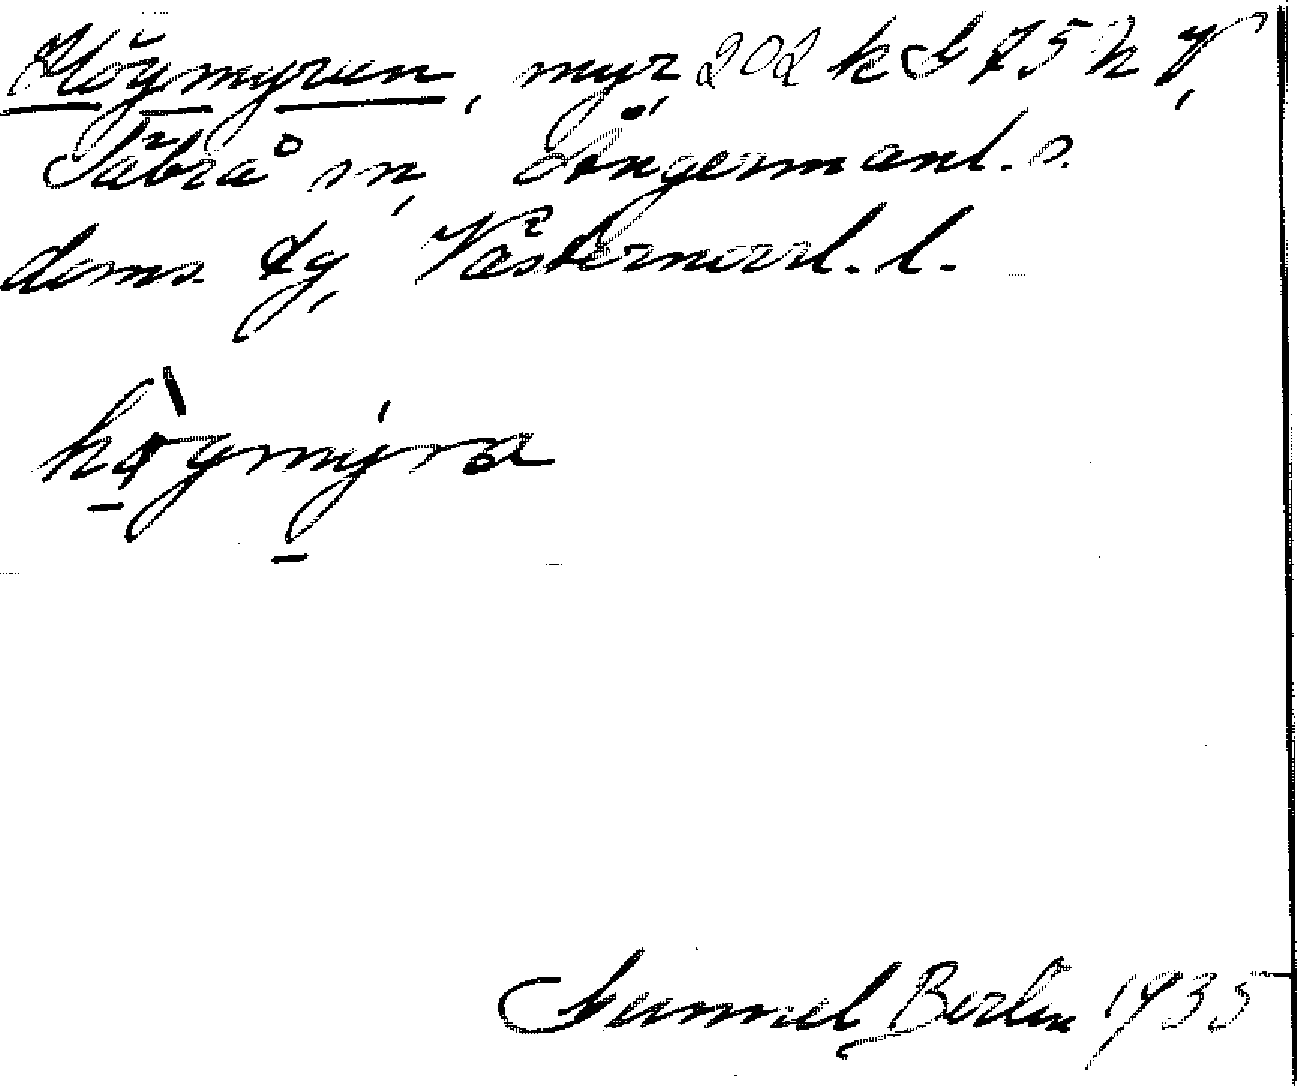 Högmyren, myr 202 k S 75 h V,
Säbrå sn, Ångermanl. s.
doms. dg, Västernorrl. l.
högmýra
Gunnel Berlin 1935